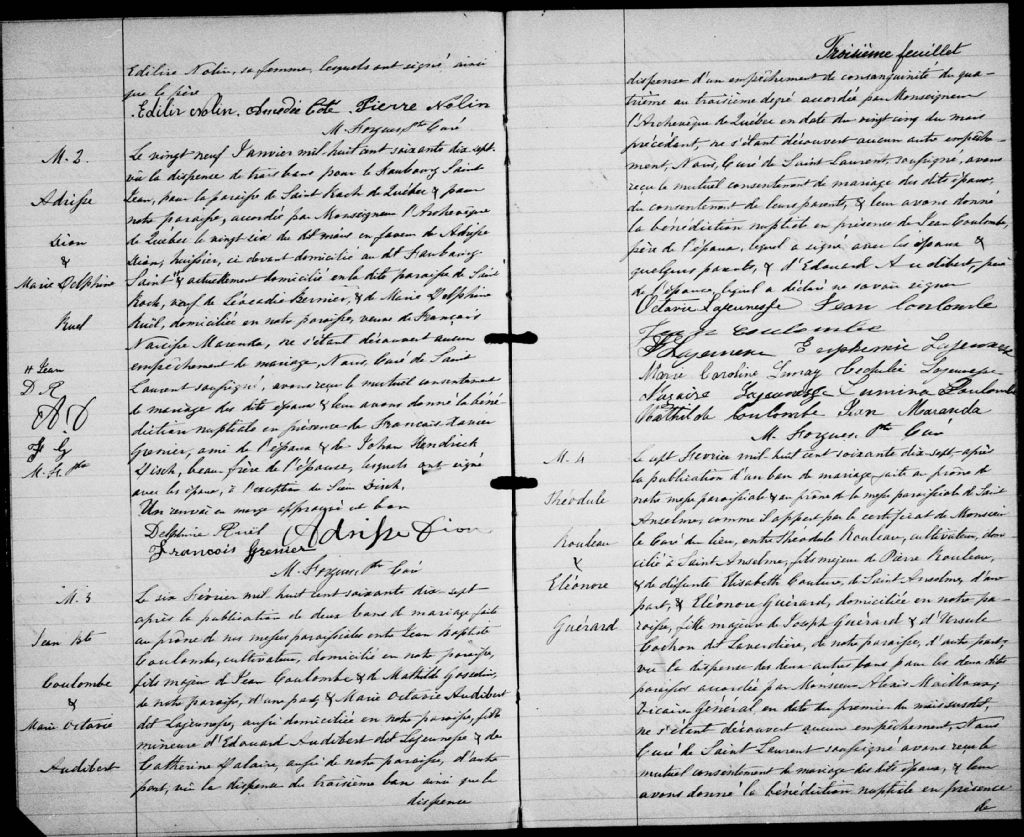 Edilire Nolin, sa femme, lesquels ont signé ainsi
que le père
Edilir Nolin, Amédée Côté Pierre Nolin
M. Forgues Ptre Curé
M. 2.
Adrisse
Dion
&
Marie Delphine
Ruel
# Jean
D. R
A. D
F. G
M. F. Ptre
Le vingt neuf Janvier mil huit cent soixante dix-sept
vu la dispense de trois bans pour le Faubourg Saint
Jean, pour la paroisse de Saint Roch de Québec & pour
notre paroisse, accordée par Monseigneur l'Archevêque
de Québec le vingt six du dit mois en faveur de Adrisse
Dion, huissier, ci devant domicilié au dt Faubourg
Saint # & actuellement domicilié en la dite paroisse de Saint
Roch, veuf de Léocadie Bernier, & de Marie Delphine
Ruël, domiciliée en notre paroisse, veuve de François
Narcisse Maranda, ne s'étant découvert aucun
empêchement de mariage, Nous, Curé de Saint
Laurent soussigné, avons reçu le mutuel consentement
de mariage des dits époux & leur avons donné la béné-
diction nuptiale en présence de Francois Xavier
Grenier, ami de l'époux & de Johan Hendrick
Disch, beau-frère de l'épouse, lesquels ont signé
avec les époux, à l'exception du Sieur Disch,
Un renvoi en marge approuvé est bon
Delphine Ruël Adrisse Dion
Francois Grenier
M. Forgues, Ptre Curé
M. 3
Jean Bte
Coulombe
&
Marie Octavie
Audibert
Le six Février mil huit cent soixante dix-sept
après la publication de deux bans de mariage faite
au prône de nos messes paroissiales entre Jean Baptiste
Coulombe, cultivateur, domicilié en notre paroisse,
fils majeur de Jean Coulombe & de Mathilde Gosselin,
de notre paroisse, d'un part, & Marie Octavie Audibert
dit Lajeunesse, aussi domiciliée en notre paroisse, fille
mineure d'Edouard Audibert dit Lajeunesse & de
Catherine Dalaire, aussi de notre paroisse, d'autre
part, vu la dispense du troisième ban ainsi que la
dispense
Troisième feuillet
dispense d'un empêchement de consanguinité du qua-
trième au troisième degré accordée par Monseigneur
l'Archevêque de Québec en date du vingt cinq du mois
précédent, ne s'étant découvert aucun autre empêche-
ment, Nous, Curé de Saint Laurent, soussigné, avons
reçu le mutuel consentement de mariage des dits époux,
du consentement de leurs parents, & leur avons donné
la bénédiction nuptiale en présence de Jean Coulombe,
père de l'époux, lequel a signé avec les époux &
quelques parents, & d'Edouard Audibert, père
de l'épouse, lequel a déclaré ne savoir signer
Octavie Lajeunesse Jean Coulombe
Jean Coulombe
Lajeunesse Euphemie Lajeunesse
Marie Caroline Lajeunesse
Nazaire Lajeunesse Lumina Coulombe
Mathilde Coulombe Jean Maranda
M. Forgues, Ptre Curé
M. 4
Théodule
Rouleau
&
Eléonore
Guérard
Le sept Février mil huit cent soixante dix-sept, après
la publication d'un ban de mariage faite au prône de
notre messe paroissiale & au prône de la messe paroissiale de Saint
Anselme, comme il appert par le certificat de Monsieur
le Curé du lieu, entre Théodule Rouleau, cultivateur, domi-
cilié à Saint Anselme, fils majeur de Pierre Rouleau,
& de defunte Elisabeth Couture, de Saint Anselme, d'une
part, & Eléonore Guérard, domiciliée en notre pa-
roisse, fille majeure de Joseph Guérard & d'Ursule
Cochon dit Laverdière, de notre paroisse, d'autre part,
vu la dispense des deux autres bans pour les deux dites
paroisses accordée par Monsieur Alexis Mailloux,
Vicaire Général en date du premier du mois susdit,
ne s'étant découvert aucun empêchement, Nous
Curé de Saint Laurent soussigné avons reçu le
mutuel consentement de mariage des dits époux, & leur
avons donné la bénédiction nuptiale en présence
de